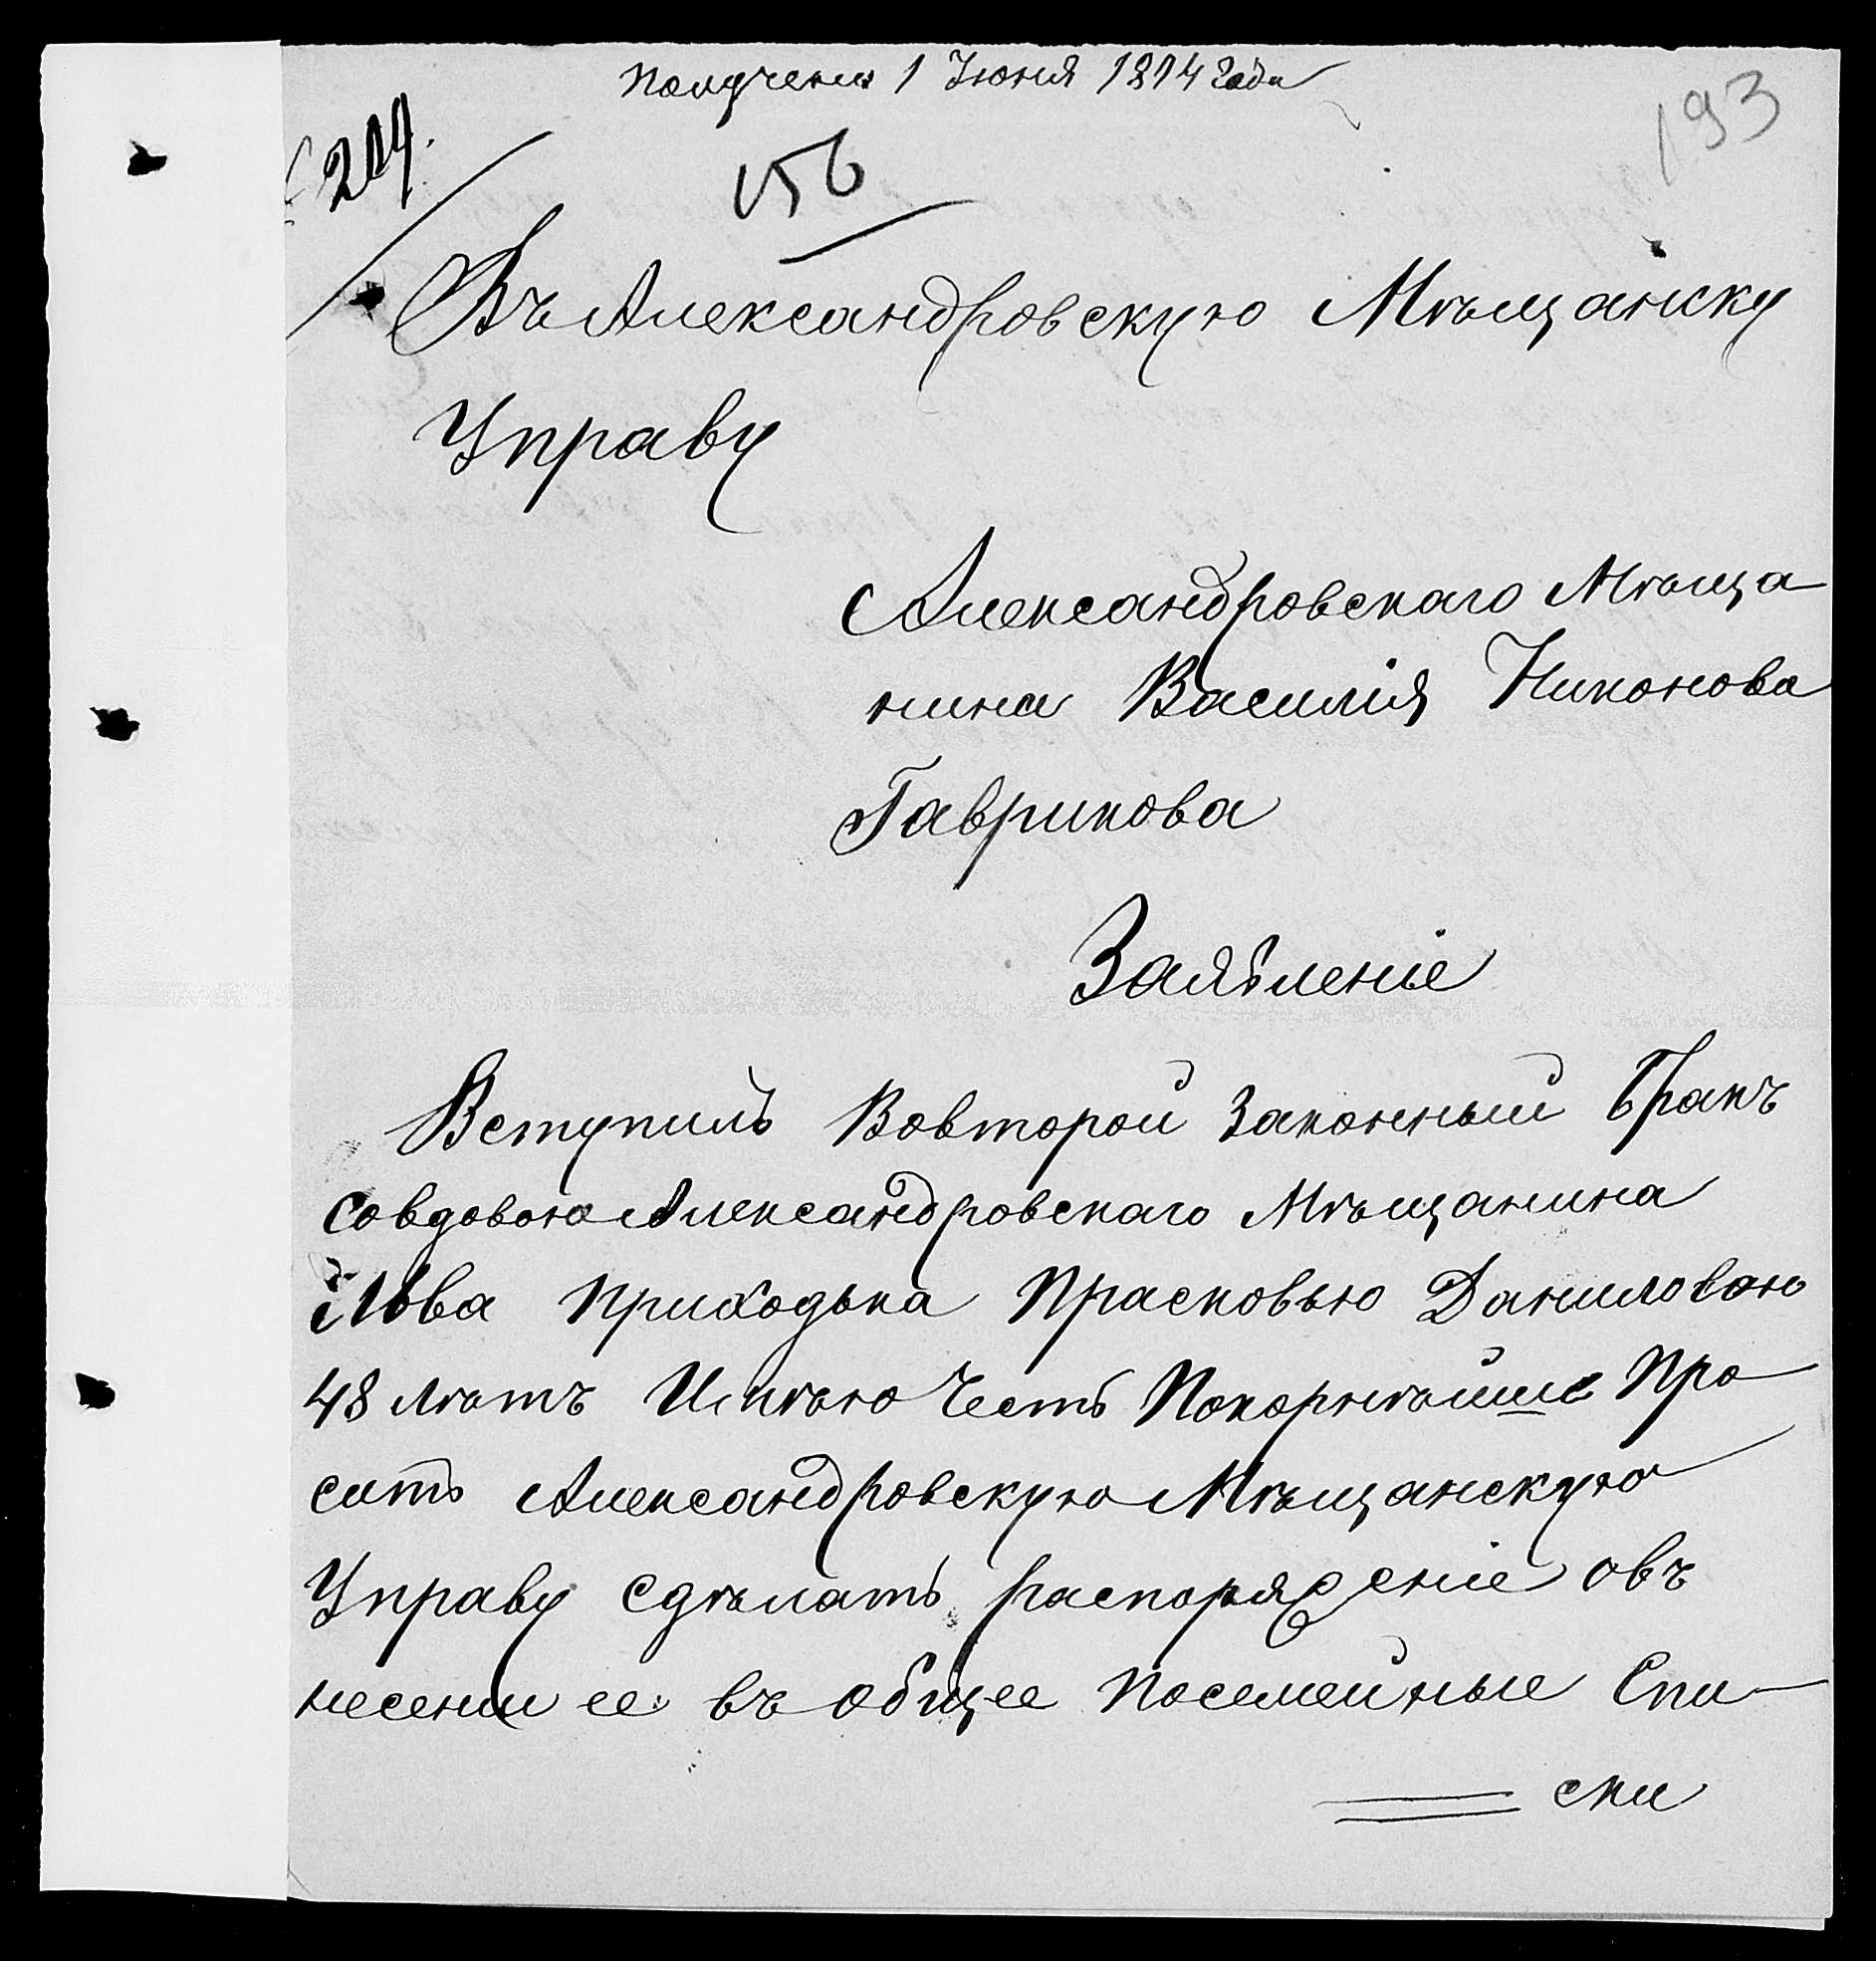 получено 1 Июня 1914 года
193
204.
156
Въ Александровскую Мѣщанску
Управу
Александровскаго Мѣща
нина Василія Никонова
Гаврикова
Заявленіе
Вступилъ Вовторой Законный Бракъ
Совдовою Александровскаго Мѣщанина
Льва Приходька Прасковью Даниловою
48 лѣтъ Имѣю Честь Покорнѣйше Про
сить Александровскую Мѣщанскую
Управу сдѣлать распоряженіе овъ
несении ее въ общее посемейные Спи-
ски